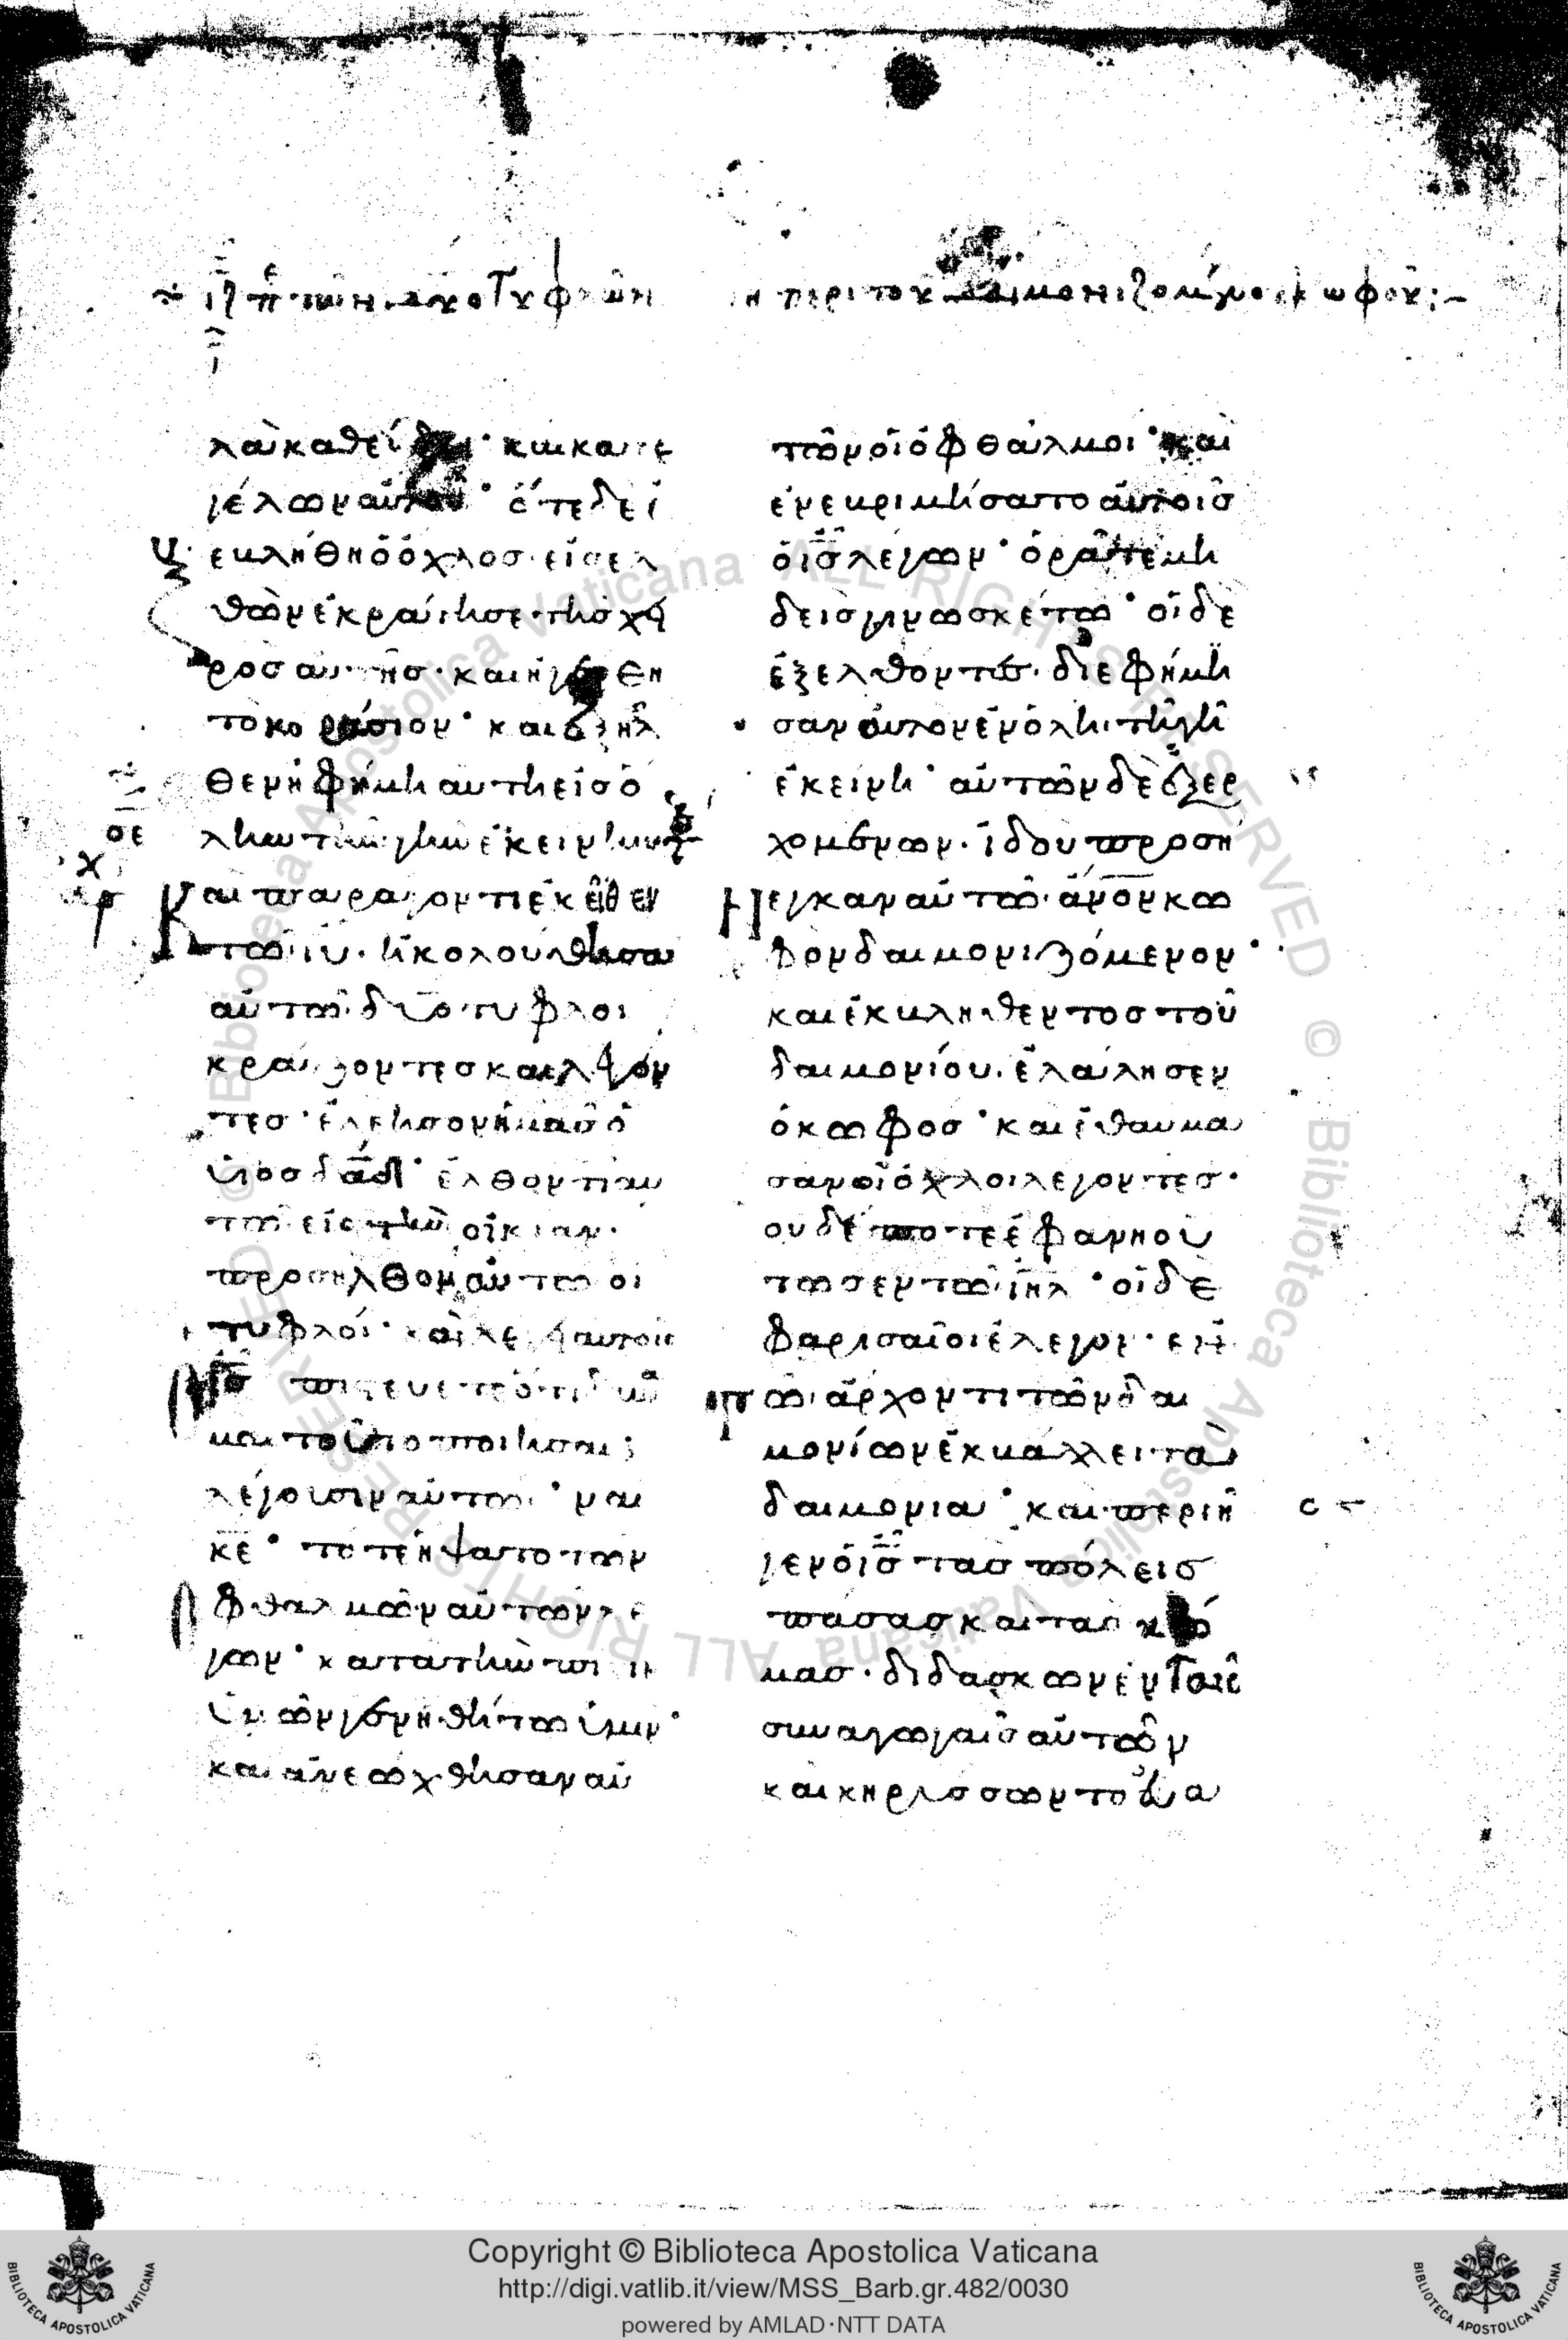 ιζ π τῶν δύο Τυφλῶν ιη περι του δαιμονιζομένου κωφοῦ:-
λὰ καθεύδει· και κατε
γέλων αὐτοῦ· ὅτε δὲ ἐξ
εβλήθη ὁ ὄχλος· εἰσελ
θὼν ἐκράτησε τῆσ χει
ροσ αυτησ· και ἠγέρθη
το κοράσιον· και ἐξῆλ
θεν ἡ φήμη αυτη εἰσ ὅ
λην τὴν γῆν ἐκεινην
οε
Και παραγοντι ἐκεῖθεν
τῶ ιυ· ἠκολούθησαν
αὐτῶ δύο τυφλοι
κράζοντεσ και λέγον
τεσ· ἐλεησον ἡμᾶσ ὁ
υἱοσ δαδ· ἐλθοντι αυ
τῶ εἰσ τὴν οἰκιαν·
προσηλθον αὐτῶ οι
τυφλοί· και λεγει αυτοισ
ὁ ισ πιστευετε ὁτι δυνα
μαι τοῦτο ποιῆσαι;
λέγουσιν αὐτω· ναι
κε· τότε ἡψατο των ὀ
φθαλμῶν αὐτῶν λε
γων· κατα τὴν πιστιν
ὑμῶν γενηθήτω ὑμιν·
και ἀνεώχθησαν αὐ
τῶν οἱ ὀφθαλμοι· και
ἐνεβριμήσατο αὐτοῖσ
ὁ ισ λεγων· ὁρᾶτε μη
δεισ γινωσκέτω· οἱ δὲ
ἐξελθοντεσ· διεφήμη
σαν αυτον ἐν ὅλη τῆ γῆ
ἐκεινη· αὐτῶν δὲ ἐξερ
χομενων· ἰδου προσή
Νεγκαν αὐτῶ· ἀνον κω
φον δαιμονιζόμενον·
και ἐκβληθεντοσ τοῦ
δαιμονίου· ἐλάλησεν
ὁ κωφοσ· και ἐθαυμα
σαν οἱ ὄχλοι λεγοντεσ·
ουδέποτε ἐφανη οὑ
τωσ εν τῶ ιηλ· οἱ δὲ
φαρισαῖοι ἐλεγον· εν
τῶ ἄρχοντι τῶν δαι
μονίων ἐκβάλλει τὰ
δαιμονια· και περιῆ
γεν ὁ ισ τασ πόλεισ
πασασ και τασ κώ
μασ· διδασκων ἐν Ταῖσ
συναγωγαῖσ αὐτῶν
και κηρύσσων το ευα